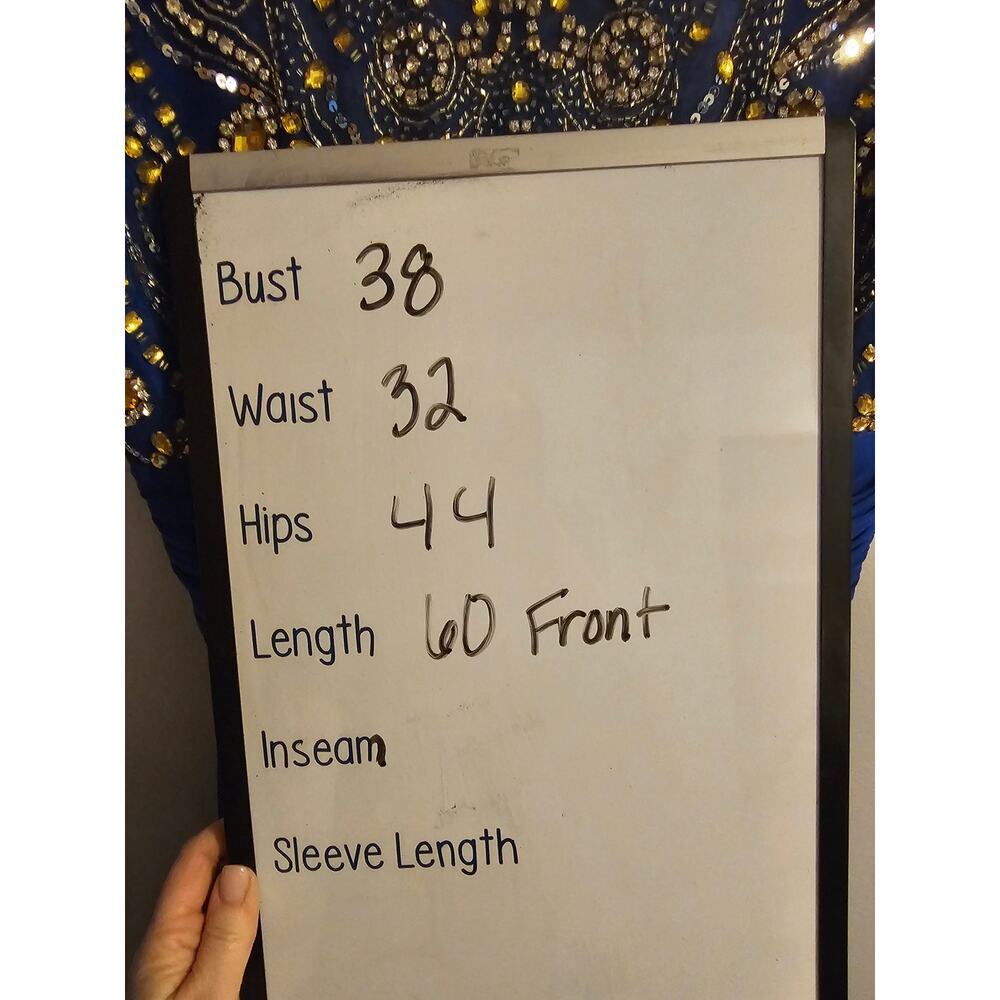 Bust 38
Waist 32
Hips 44
Length 60 Front
Inseam
Sleeve Length